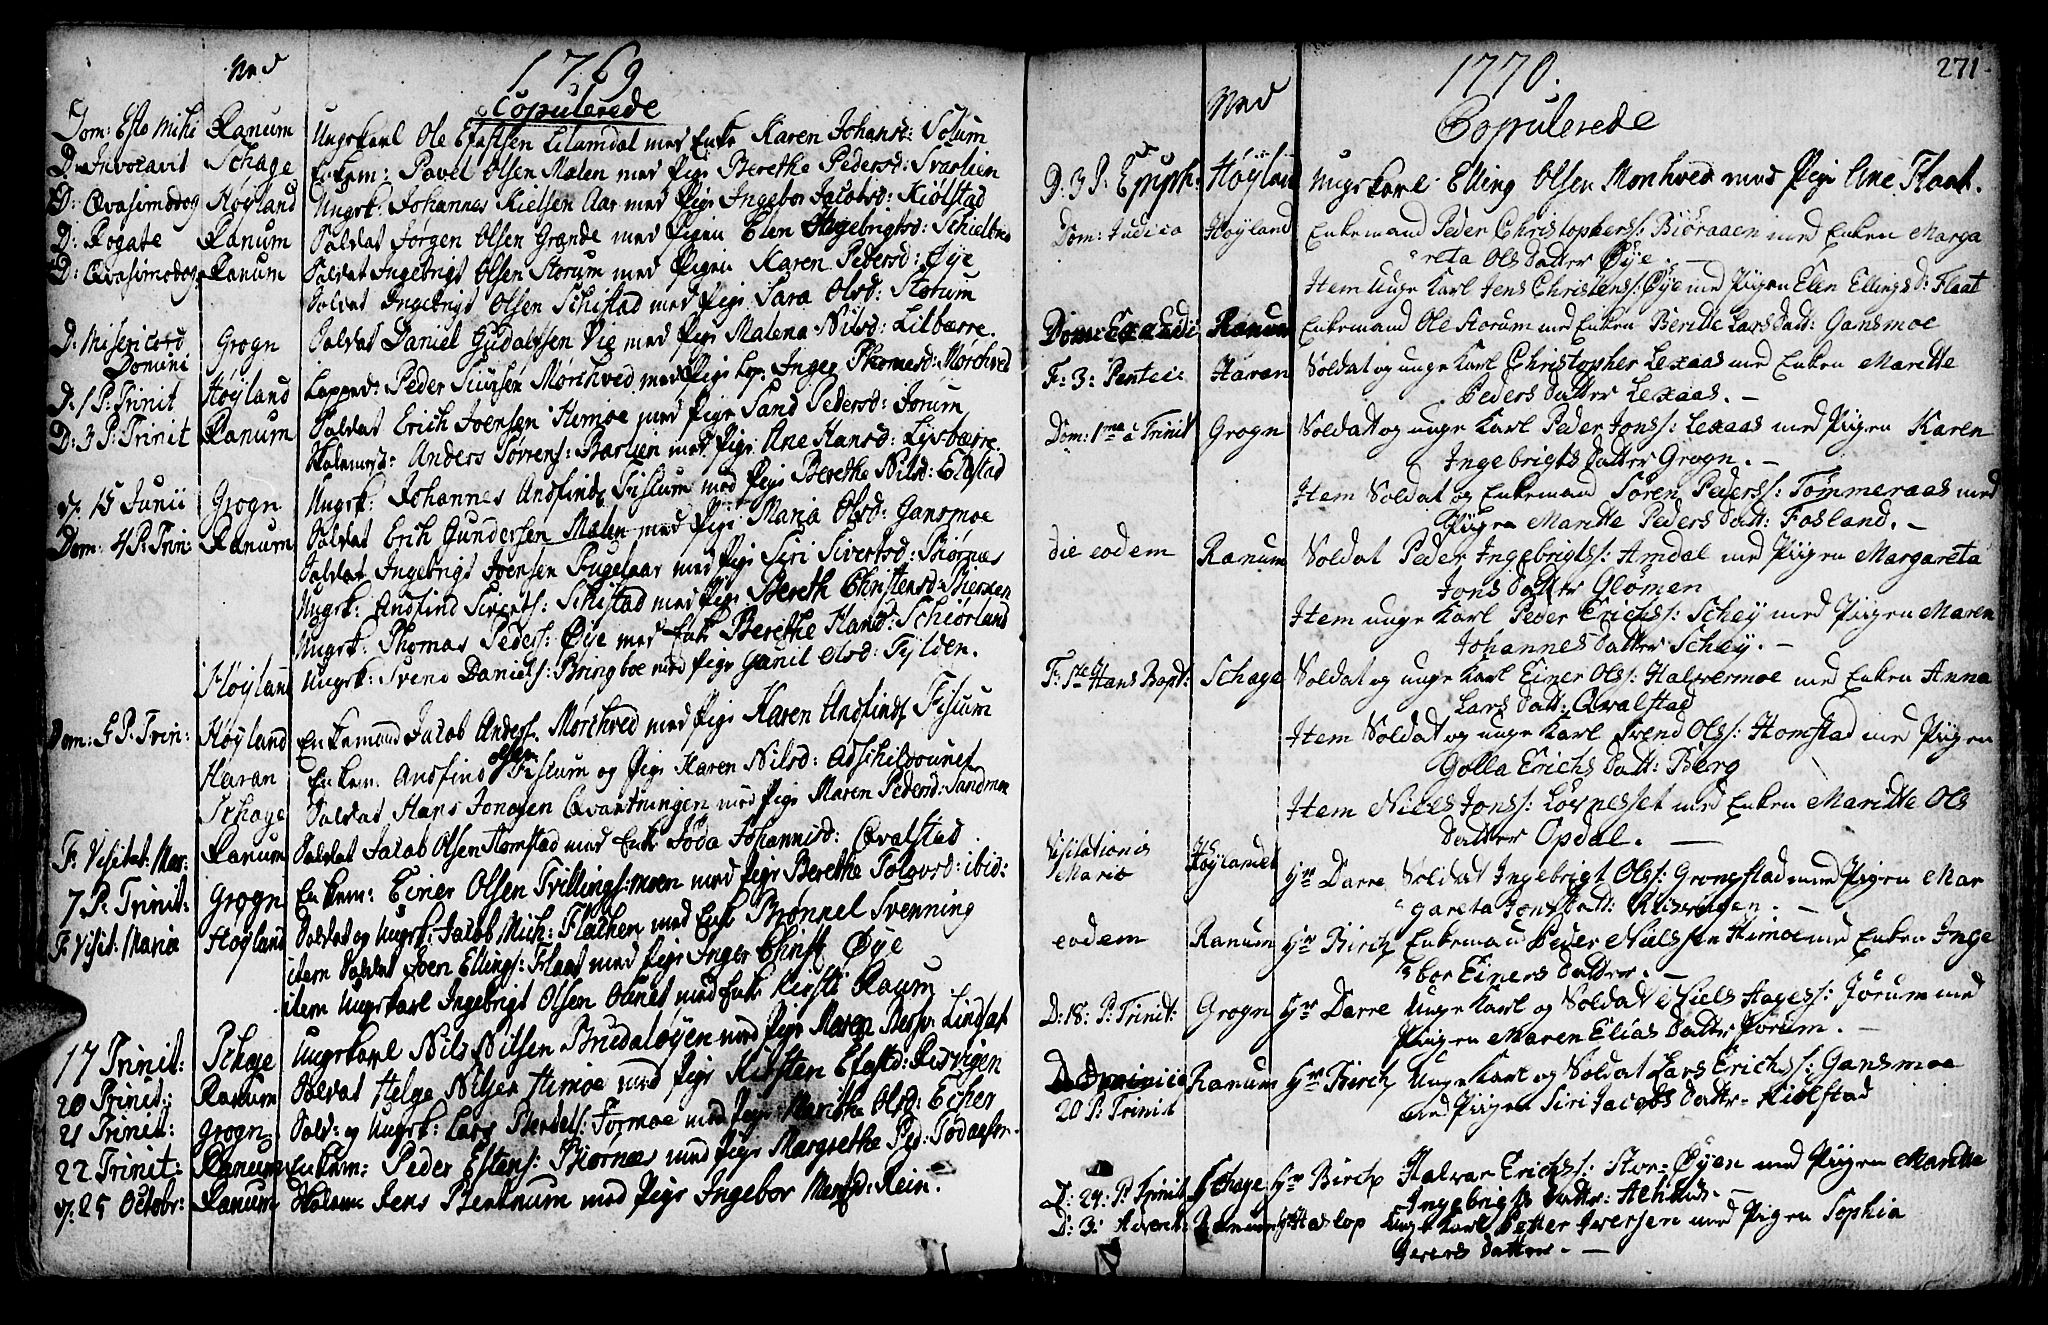 Ved
1769
Copulerede
Dom: Esto Mihi Ranum Ungskarl Ole Efastsen Lilamdal med Enke Karen Johansd: Solum
D. Invocavit Schage Enkem: Povel Olsen Malen med Pige Berethe Pedersd: Svarlien
D: Qvasimodog Høyland Ungsk: Johannes Kielsen Aar med Pige Ingebor Jacobsd: Kiølstad
D: Rogate Ranum Soldat Jørgen Olsen Grande med Pigen Elen Ingebrigtsd: Schielbred
D: Qvasimodog Ranum Soldat Ingebrigt Olsen Storum med Pigen Karen Pedersd: Øye
Soldat Ingebrigt Olsen Schistad med Pige Sara Olsd: Storum
D: Misericord Domini Grogn Soldat Daniel Gudalfsen Vie med Pige Malena Nilsd: Lilbærre.
D. 1 P: Trinit Høyland Lapped: Peder Siursen Mørchved med Pige Lap. Inger Thomasd: Mørchved
D: 3 P: Trinit Ranum Soldat Erich Joensen Hemoe med Pige Sand Pedersd: Jørum
Anders Sørrens: Barlien med Pige Ane Hansd: Lysbærre
d: 15 Junii Grogn Ungsk: Johannes Andfinds Fislum med Pige Berethe Nilsd: Elstad
Dom: 4 P: Trin: Ranum Soldat Erik Gundersen Malen med Pige Maria Olsd: Gansmoe
Soldat Ingebrigt Joensen Fugelaar med Pige Siri Sivertsd: Biørnæs
Ungsk: Andfind Siverts: Schistad med Pige Bereth Christensd:
Ungsk: Thomas Peders: Øye med Enke Berethe Hansd: Schiørland
Høyland Ungsk: Svend Daniels: Bringboe med Pige Gunil Olsd: Tylden.
Dom: 5 P. Trin: Høyland Enkemand Jacob Anders. Mørchved med Pige Karen Andfinds Fislum
Haran Enkem: Andfind Olsen Fislum og Pige Karen Nilsd: Adschilsvounet
Schage Soldat Hans Jonasen Qvartningen med Pige Maren Pedersd: Sandmoe
F. Visitat: Mar: Ranum Soldat Jacob Olsen Homstad med Enke Joda Johannisd: Qvalstad
7 P: Trinit: Grogn Enkem: Einer Olsen Tvillingsmoen med Pige Berethe Tolovsd: ibid:
F: Visit: Mariæ Høyland Soldat og Ungsk: Jacob Mich: Flachen med Enke Brønnel Svenning
item Soldat Joen Ellings: Flaat med Pige Inger Christ Øye
item Ungskarl Ingebrigt Olsen med Enke Kirsti Ranum
17 Trinit: Schage Ungskarl Nils Nilsen Bredaløyen med Pige Maren Lindset
20 Trinit: Ranum Soldat Helge Nilsen Hemoe med Pige Kirsten Efastd: Risvigen
21 Trinit: Grogn Sold: og Ungsk: Lars Bertels: Formoe med Pige Marithe Olsd: Echer
22 Trinit: Ranum Enkem: Peder Estens: Biørnæs med Pige Margrethe Ped:
d: 25 Octobr: Ranum Jens Bentnum med Pige Ingebor Rein.
271
Ved
1770.
Copulerede
D. 3 P. Epiph: Høyland Ungskarl Elling Olsen Morkved med Pige Ane Flaat.
Dom: Judica Høyland Enkemand Peder Christophers: Biøraaen med Enken Marga
reta Olsdatter Øye. —
Item unge Karl Jens Christens: Øye med Piigen Elen Ellingsd: Flaat
Dom: Exaudi Ranum Enkemand Ole Korum med Enken Beritte Larsdatt: Gansmoe
F: 3: Pentec: Haran Soldat og unge Karl Christopher Lexaas med Enken Maritte
Pedersdatter Lexaas. —
Dom: 1ma a Trinit Grogn Soldat og unge Karl Peder Jons: Lexaas med Piigen Karen
Ingebrigtsdatter Grogn. —
Item Soldat og Enkemand Søren Peders: Tømmeraas med
Piigen Maritte Pedersdatt: Fosland. —
die eodem Ranum Soldat Peder Ingebrigts: Amdal med Piigen Margareta
Jonsdatter Glømen
Item unge Karl Peder Erichs: Schey med Piigen Maren
Johannesdatter Schey. —
F: Sti Hans Bapt: Schage Soldat og unge Karl Einer Ols: Halvermoe med Enken Anna
Larsdatt: Qvalstad
Item Soldat og unge Karl Svend Ols: Homstad med Piigen
Golla Erichsdatt: Berg
Item Niels Jons: Løvnesset med Enken Maritte Ols
datter Opdal. —
Visitationis Mariæ Høylandet Hr Darre Soldat Ingebrigt Ols: Grongstad med Piigen Mar
gareta Jonsdatt: Risvigen. —
eodem Ranum Hr Birch Enkemand Peder Nielssen Himoe med Enken Inge
bor Einersdatter. —
D: 18: P: Trinit: Grogn Hr Darre Unge Karl og Soldat Niels Hages: Jørum med
Piigen Maren Eliasdatter Jørum. —
Dominica 20 P: Trinit Ranum Hr Birch Unge Karl og Soldat Lars Erichs: Gansmoe
med Piigen Siri Jacobsdattr Kiølstad
D: 24: P: Trinit Schage Hr Birch Halvar Erichs: Stor-Øyen med Piigen Maritte
Ingebrigtsdatter:
D: 3: Advent: Ranum Hr Haslop Unge Karl Petter Iversen med Piigen Sophia
datter. —